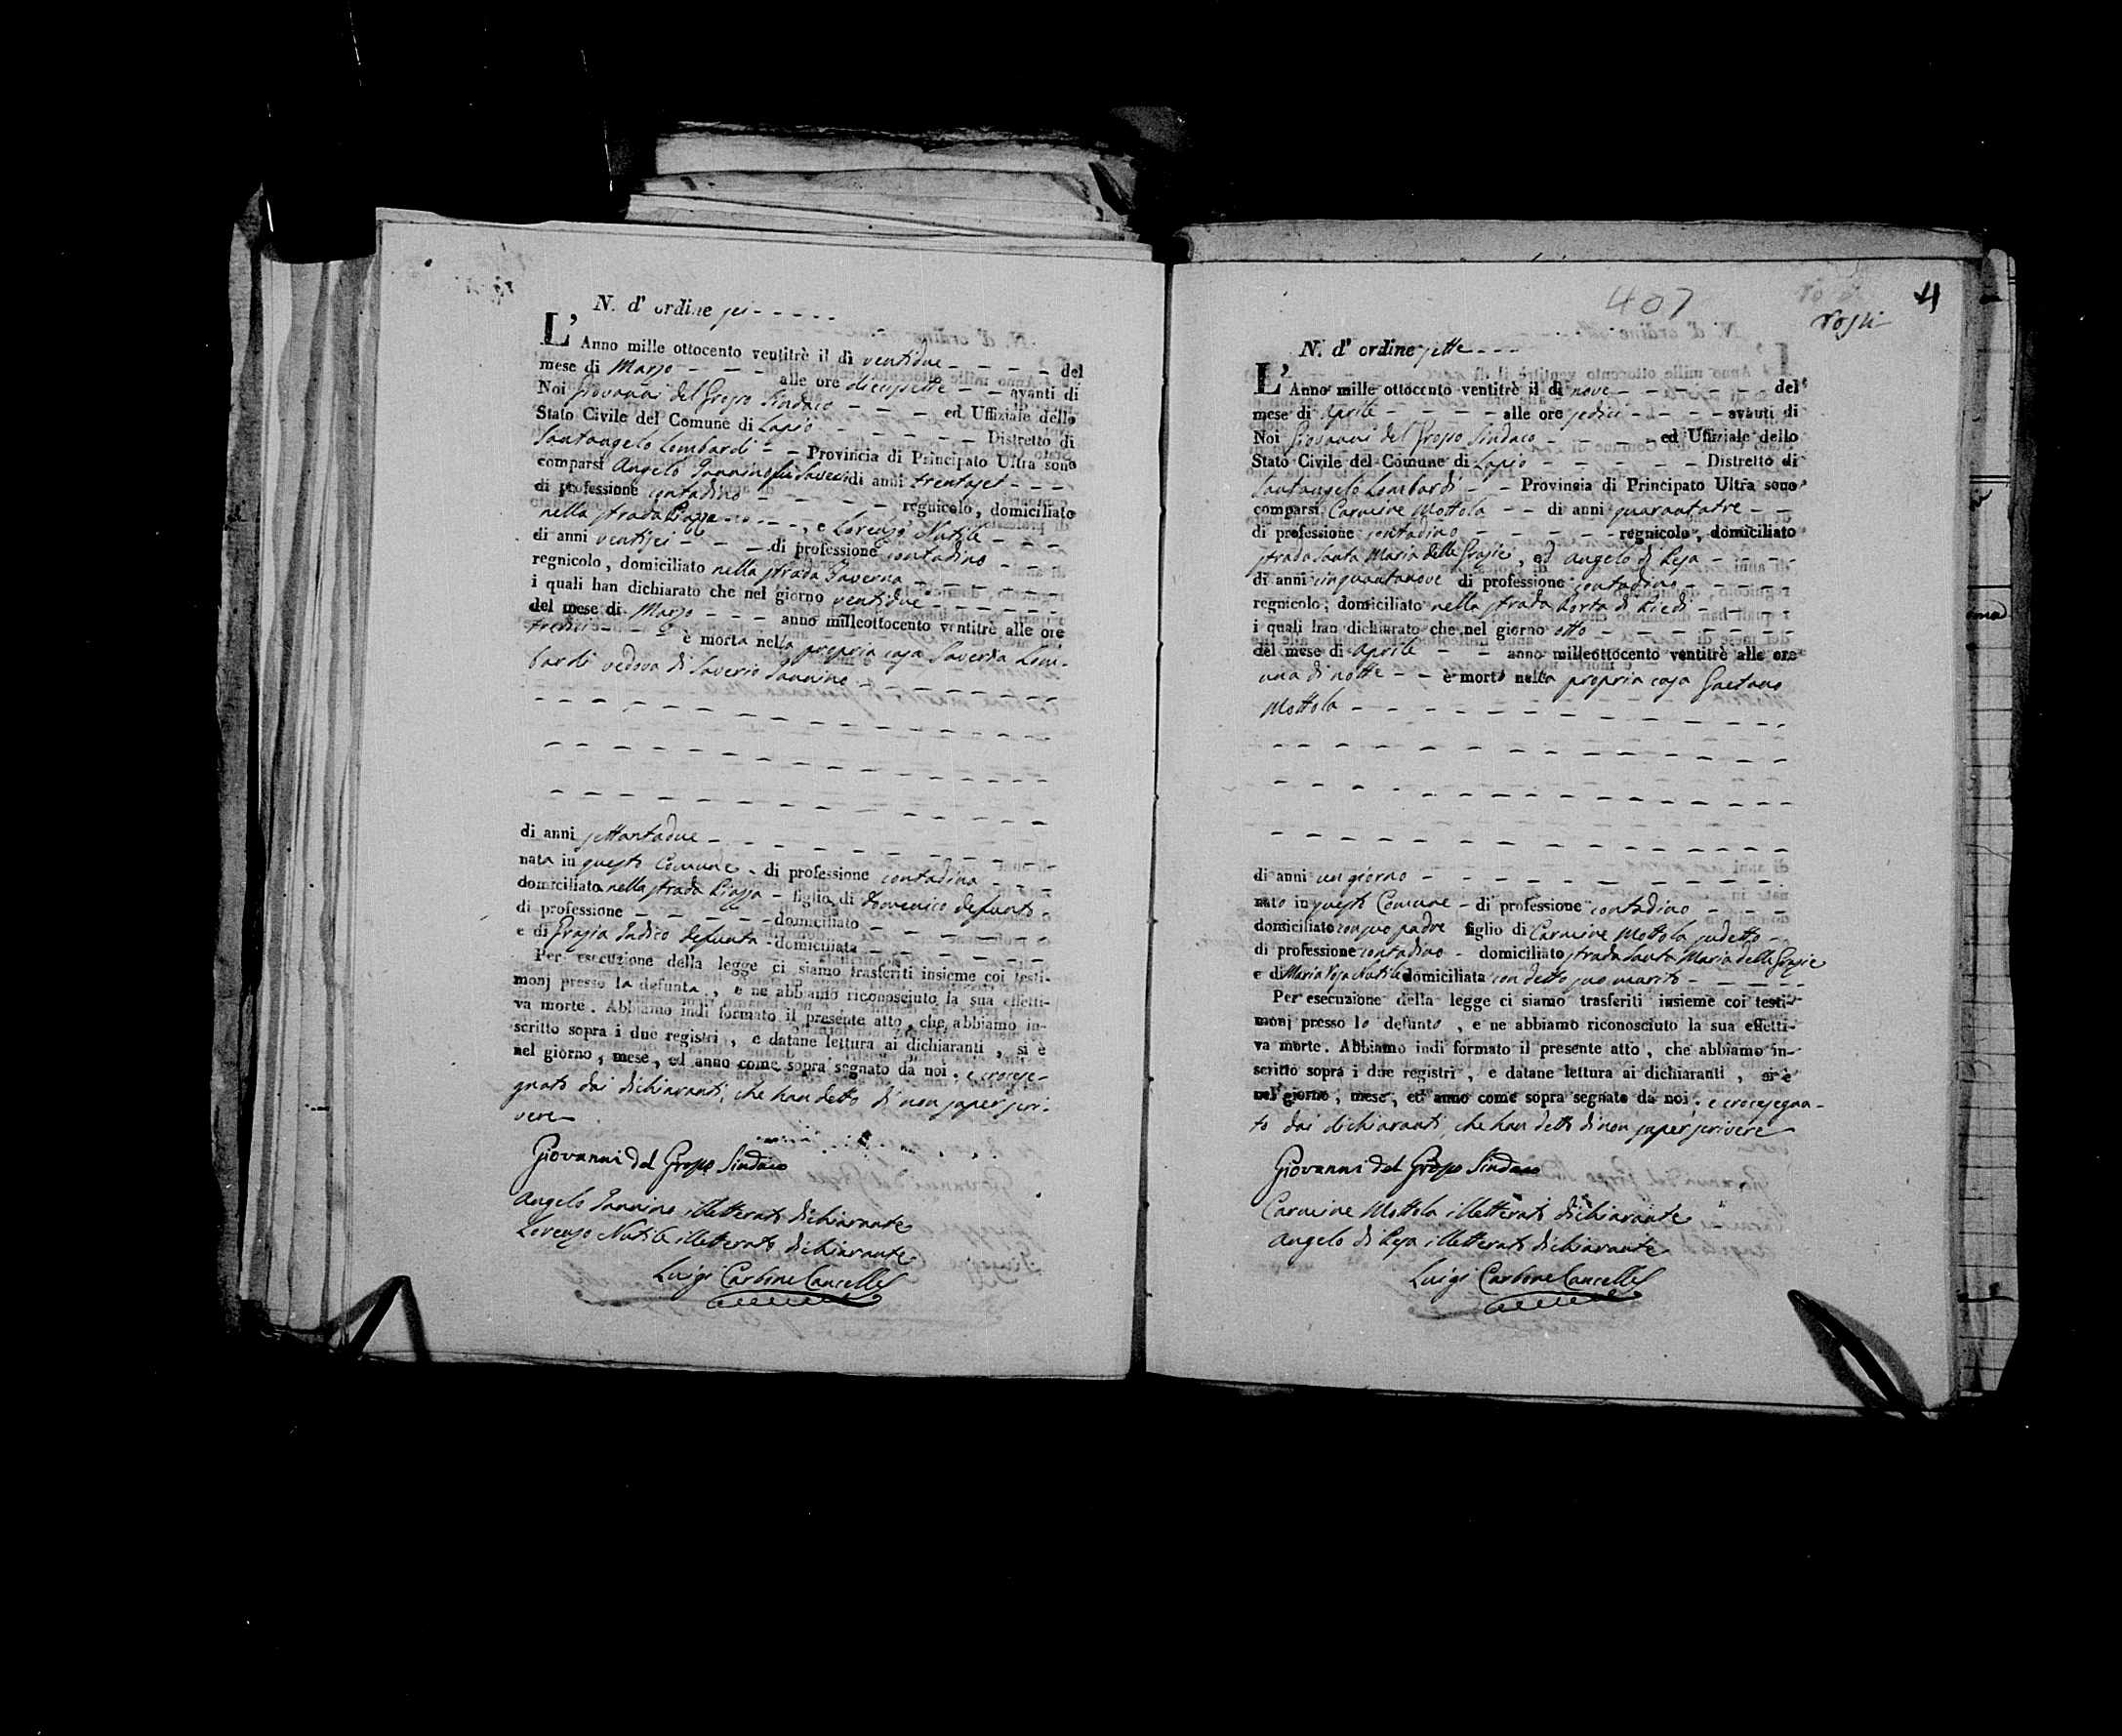 N. d' ordine sei
L' Anno mille ottocento ventitrè il dì ventidue del
mese di Marzo alle ore diecisette avanti di
Noi Giovanni del Grosso Sindaco ed Uffiziale dello
Stato Civile del Comune di Lapio Distretto di
Santangelo Lombardi Provincia di Principato Ultra sono
comparsi Angelo Iannino fu Saverio di anni trentasei
di professione contadino regnicolo, domiciliato
nella strada Piazza, e Lorenzo Nutile
di anni ventisei di professione contadino
regnicolo, domiciliato nella strada Taverna
i quali han dichiarato che nel giorno ventidue
del mese di Marzo anno milleottocento ventitrè alle ore
tredici è morta nella propria casa Saveria Lom-
bardi vedova di Saverio Iannino
di anni settantadue
nata in questo Comune di professione contadina
domiciliata nella strada Piazza figlia di Domenico defunto
di professione domiciliato
e di Grazia Iadico defunta domiciliata
Per esecuzione della legge ci siamo trasferiti insieme coi testi-
monj presso la defunta, e ne abbiamo riconosciuto la sua effetti-
va morte. Abbiamo indi formato il presente atto, che abbiamo in-
scritto sopra i due registri, e datane lettura ai dichiaranti, si è
nel giorno, mese, ed anno come sopra segnato da noi, e crocese-
gnato dai dichiaranti, che han detto di non saper scri-
vere
Giovanni del Grosso Sindaco
Angelo Iannino illetterato dichiarante
Lorenzo Nutile illetterato dichiarante
Luigi Carbone Cancelle
407
4
N. d' ordine sette
L' Anno mille ottocento ventitrè il dì nove del
mese di Aprile alle ore sedici avanti di
Noi Giovanni del Grosso Sindaco ed Uffiziale dello
Stato Civile del Comune di Lapio Distretto di
Santangelo Lombardi Provincia di Principato Ultra sono
comparsi Carmine Mottola di anni quarantatre
di professione contadino regnicolo, domiciliato
strada Santa Maria delle Grazie, ed Angelo di Resa
di anni cinquantanove di professione contadino
regnicolo, domiciliato nella strada Porta di Piedi
i quali han dichiarato che nel giorno otto
del mese di Aprile anno milleottocento ventitrè alle ore
una di notte è morto nella propria casa Gaetano
Mottola
di anni un giorno
nato in questo Comune di professione contadino
domiciliato con suo padre figlio di Carmine Mottola sudetto
di professione contadino domiciliato strada Santa Maria delle Grazie
e di Maria Rosa Nutile domiciliata con detto suo marito
Per esecuzione della legge ci siamo trasferiti insieme coi testi-
monj presso lo defunto, e ne abbiamo riconosciuto la sua effetti-
va morte. Abbiamo indi formato il presente atto, che abbiamo in-
scritto sopra i due registri, e datane lettura ai dichiaranti, si è
nel giorno, mese, ed anno come sopra segnato da noi, e crocesegna-
to dai dichiaranti, che han detto di non saper scrivere
Giovanni del Grosso Sindaco
Carmine Mottola illetterato dichiarante
Angelo di Resa illetterato dichiarante
Luigi Carbone Cancelle